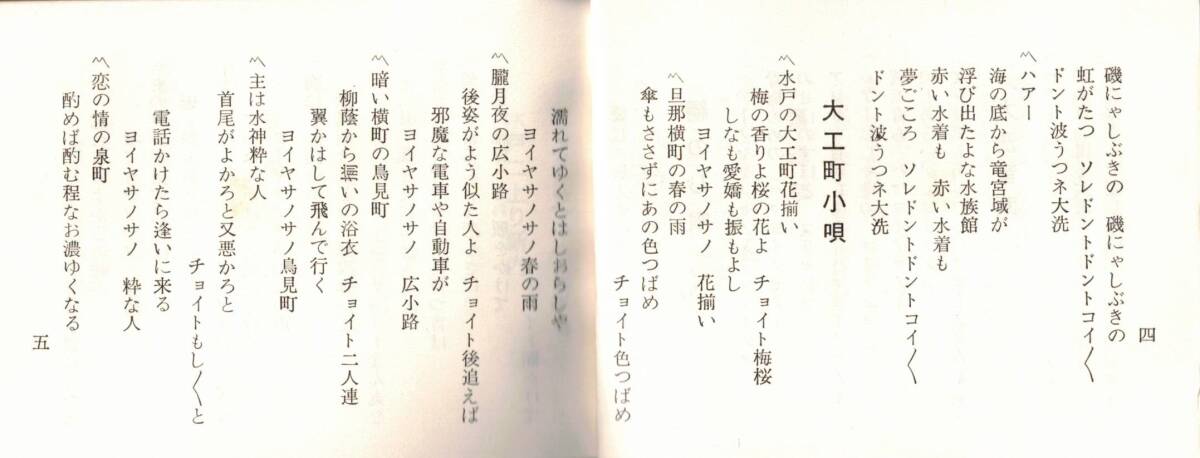 四
磯にゃしぶきの　磯にゃしぶきの
虹がたつ　ソレドントドントコイ〱
ドント波うつネ大洗
〽ハアー
海の底から竜宮城が
浮び出たよな水族館
赤い水着も　赤い水着も
夢ごころ　ソレドントドントコイ〱
ドント波うつネ大洗
大工町小唄
〽水戸の大工町花揃い
梅の香りよ桜の花よ　チョイト梅桜
しなも愛嬌も振もよし
ヨイヤサノサノ　花揃い
〽旦那横町の春の雨
傘もささずにあの色つばめ
チョイト色つばめ
濡れてゆくとはしおらしや
ヨイヤサノサノ春の雨
〽朧月夜の広小路
後姿がよう似た人よ　チョイト後追えば
邪魔な電車や自動車が
ヨイヤサノサノ　広小路
〽暗い横町の鳥見町
柳蔭から揃いの浴衣　チョイト二人連
翼かはして飛んで行く
ヨイヤサノサノ鳥見町
〽主は水神粋な人
首尾がよかろと又悪かろと
チョイトもし〱と
電話かけたら逢いに来る
ヨイヤサノサノ　粋な人
〽恋の情の泉町
酌めば酌む程なお濃ゆくなる
五